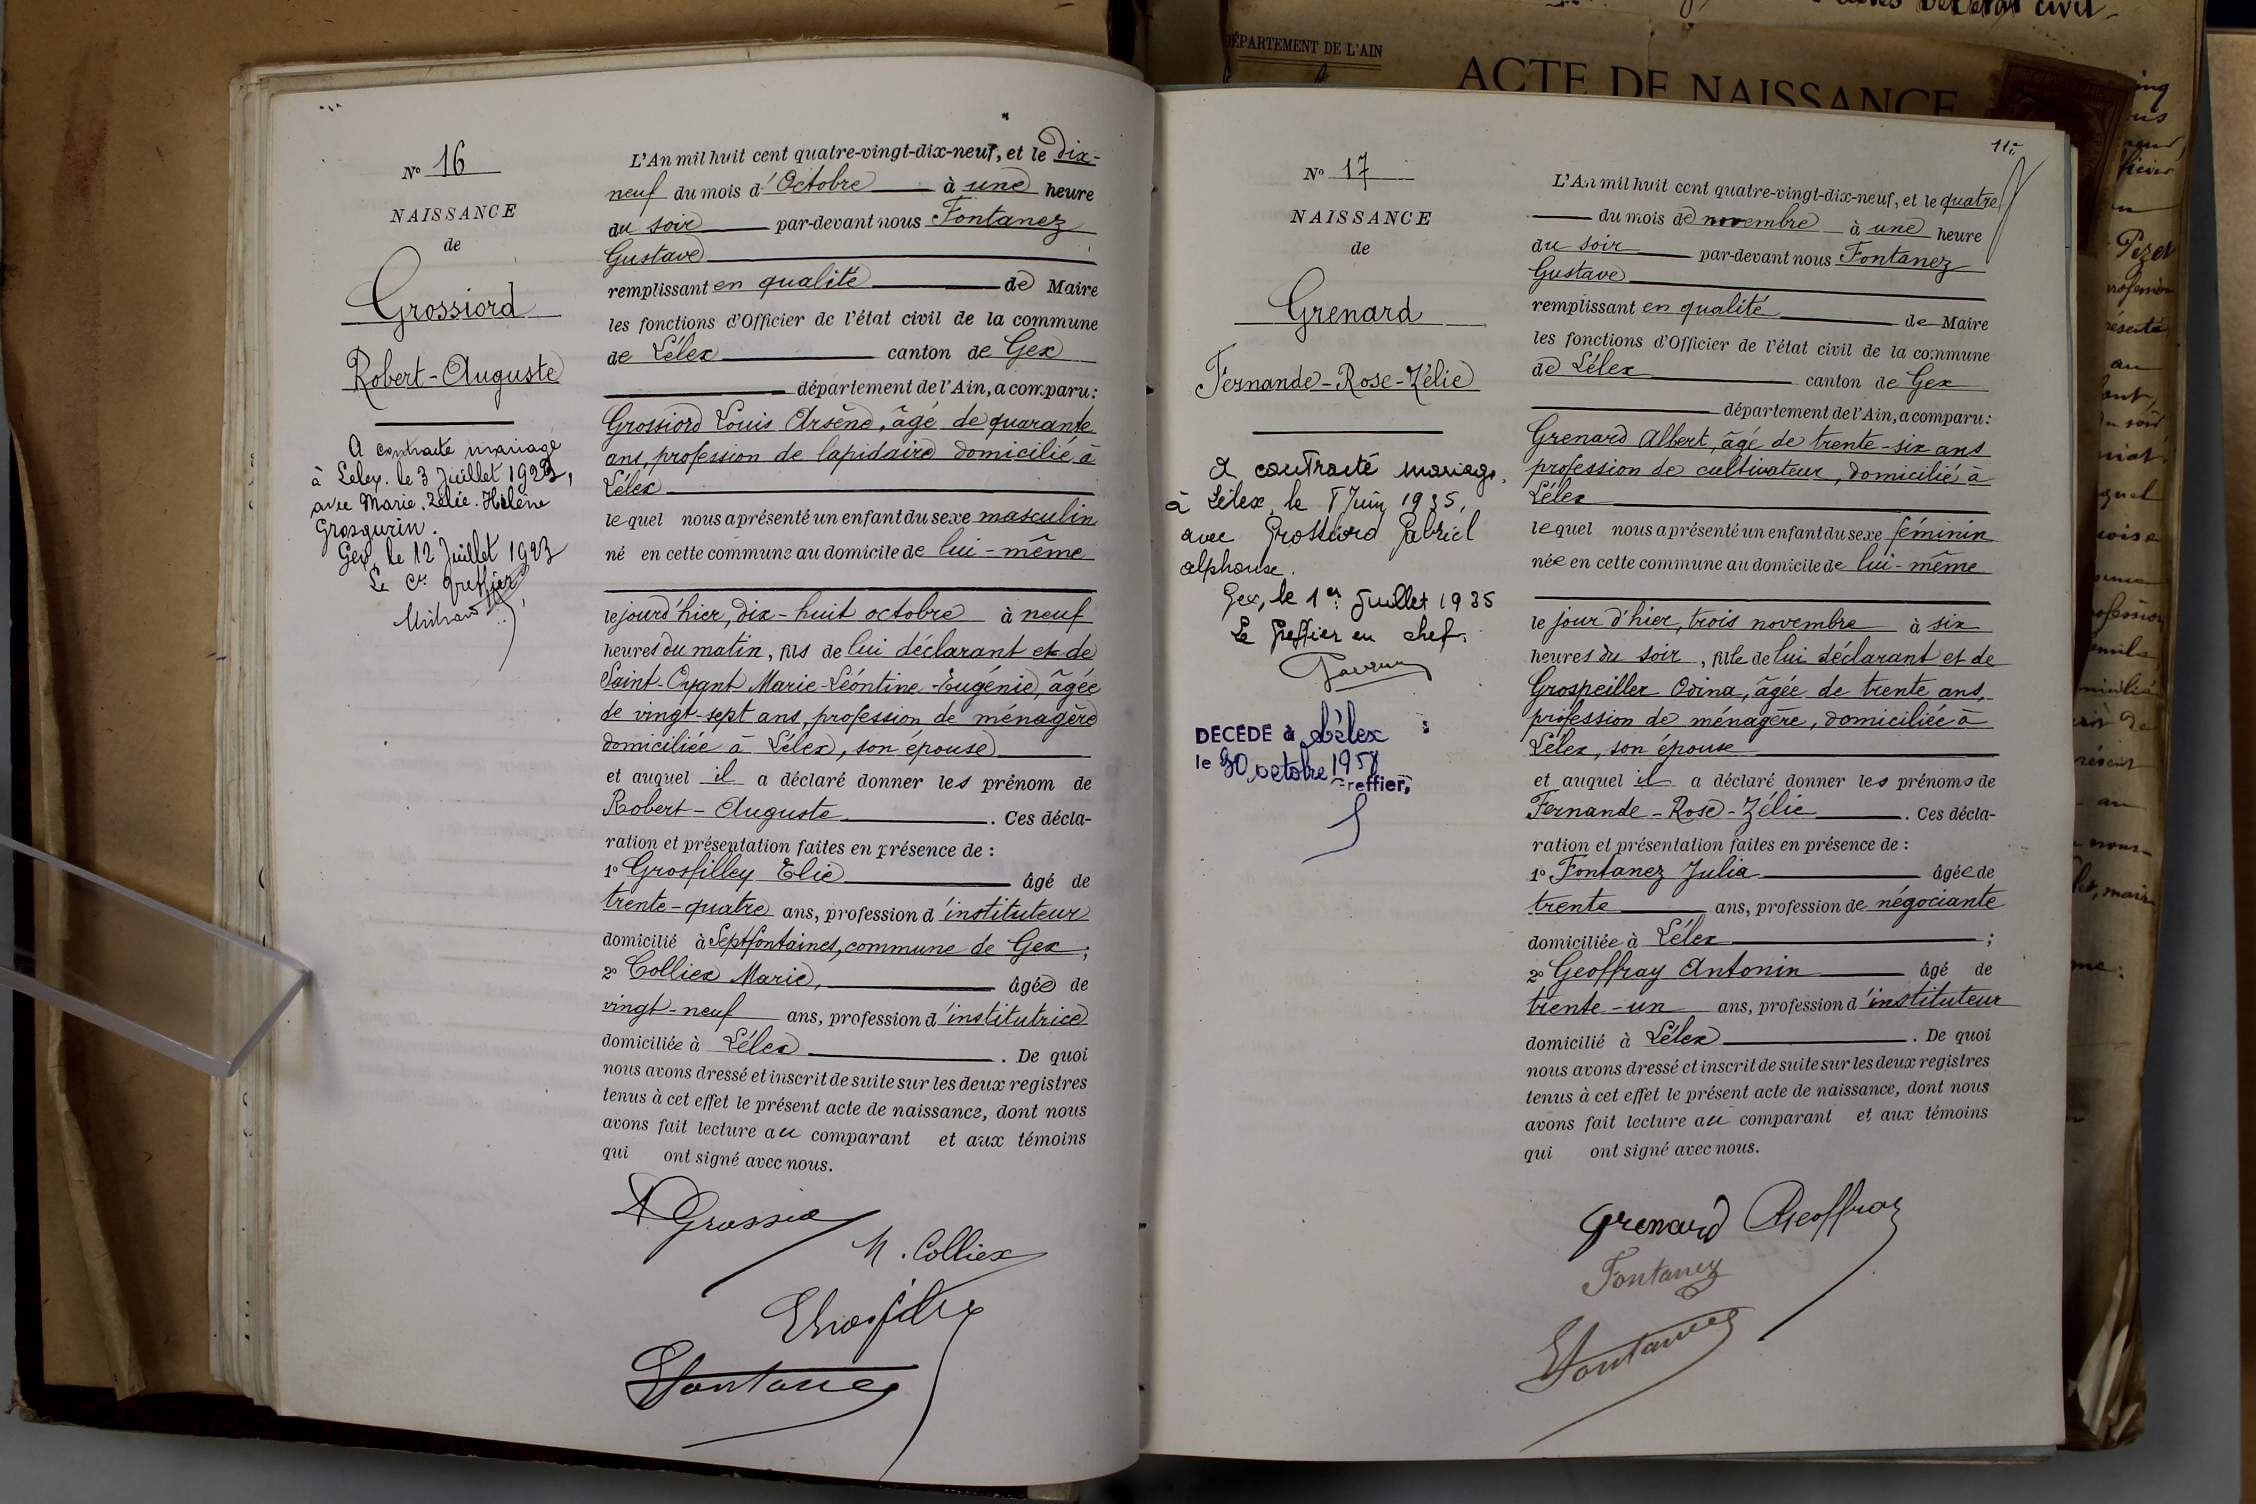 N° 16
NAISSANCE
de
Grossiord
Robert-Auguste
A contracté mariage
à Lelex. le 3 Juillet 1923,
avec Marie. Zélie. Hélène
Grosgurin.
Gex, le 12 Juillet 1923
Le Cis greffier
L'An mil huit cent quatre-vingt-dix-neuf, et le dix-
neuf du mois d'Octobre à une heure
du soir par-devant nous Fontanez
Gustave
remplissant en qualité de Maire
les fonctions d'Officier de l'état civil de la commune
de Lélex canton de Gex
département de l'Ain, a comparu:
Grossiord Louis Arsène, âgé de quarante
ans, profession de lapidaire domicilié à
Lélex
lequel nous a présenté un enfant du sexe masculin
né en cette commune au domicile de lui-même
le jour d'hier, dix-huit octobre à neuf
heures du matin, fils de lui déclarant et de
Saint-Oyant Marie-Léontine-Eugénie, âgée
de vingt-sept ans, profession de ménagère
domiciliée à Lélex, son épouse
et auquel il a déclaré donner les prénom de
Robert-Auguste. Ces décla-
ration et présentation faites en présence de :
1° Grosfilley Elie âgé de
trente-quatre ans, profession d'instituteur
domicilié à Septfontaines, commune de Gex;
2° Colliex Marie, âgée de
vingt-neuf ans, profession d'institutrice
domiciliée à Lélex. De quoi
nous avons dressé et inscrit de suite sur les deux registres
tenus à cet effet le présent acte de naissance, dont nous
avons fait lecture au comparant et aux témoins
qui ont signé avec nous.
M. Colliex
Fontanez
DÉPARTEMENT DE L'AIN
ACTE DE NAISSANCE
N° 17
NAISSANCE
de
Grenard
Fernande-Rose-Zélie
A contracté mariage
à Lélex, le Juin 1935,
avec Grossiord Gabriel
alphonse.
Gex, le 1er Juillet 1935
Le Greffier en chef.
DECEDE à Lélex
le 30 octobre 1958
reffier,
L'An mil huit cent quatre-vingt-dix-neuf, et le quatre
du mois de novembre à une heure
du soir par-devant nous Fontanez
Gustave
remplissant en qualité de Maire
les fonctions d'Officier de l'état civil de la commune
de Lélex canton de Gex
département de l'Ain, a comparu:
Grenard Albert, âgé de trente-six ans
profession de cultivateur, domicilié à
Lélex
lequel nous a présenté un enfant du sexe féminin
née en cette commune au domicile de lui-même
le jour d'hier, trois novembre à six
heures du soir, fille de lui déclarant et de
Grospeiller Odina, âgée de trente ans,
profession de ménagère, domiciliée à
Lélex, son épouse
et auquel il a déclaré donner les prénoms de
Fernande-Rose-Zélie. Ces décla-
ration et présentation faites en présence de :
1° Fontanez Julia âgée de
trente ans, profession de négociante
domiciliée à Lélex;
2° Geoffray Antonin âgé de
trente-un ans, profession d'instituteur
domicilié à Lélex. De quoi
nous avons dressé et inscrit de suite sur les deux registres
tenus à cet effet le présent acte de naissance, dont nous
avons fait lecture au comparant et aux témoins
qui ont signé avec nous.
Grenard Geoffray
Fontanez
Fontanez